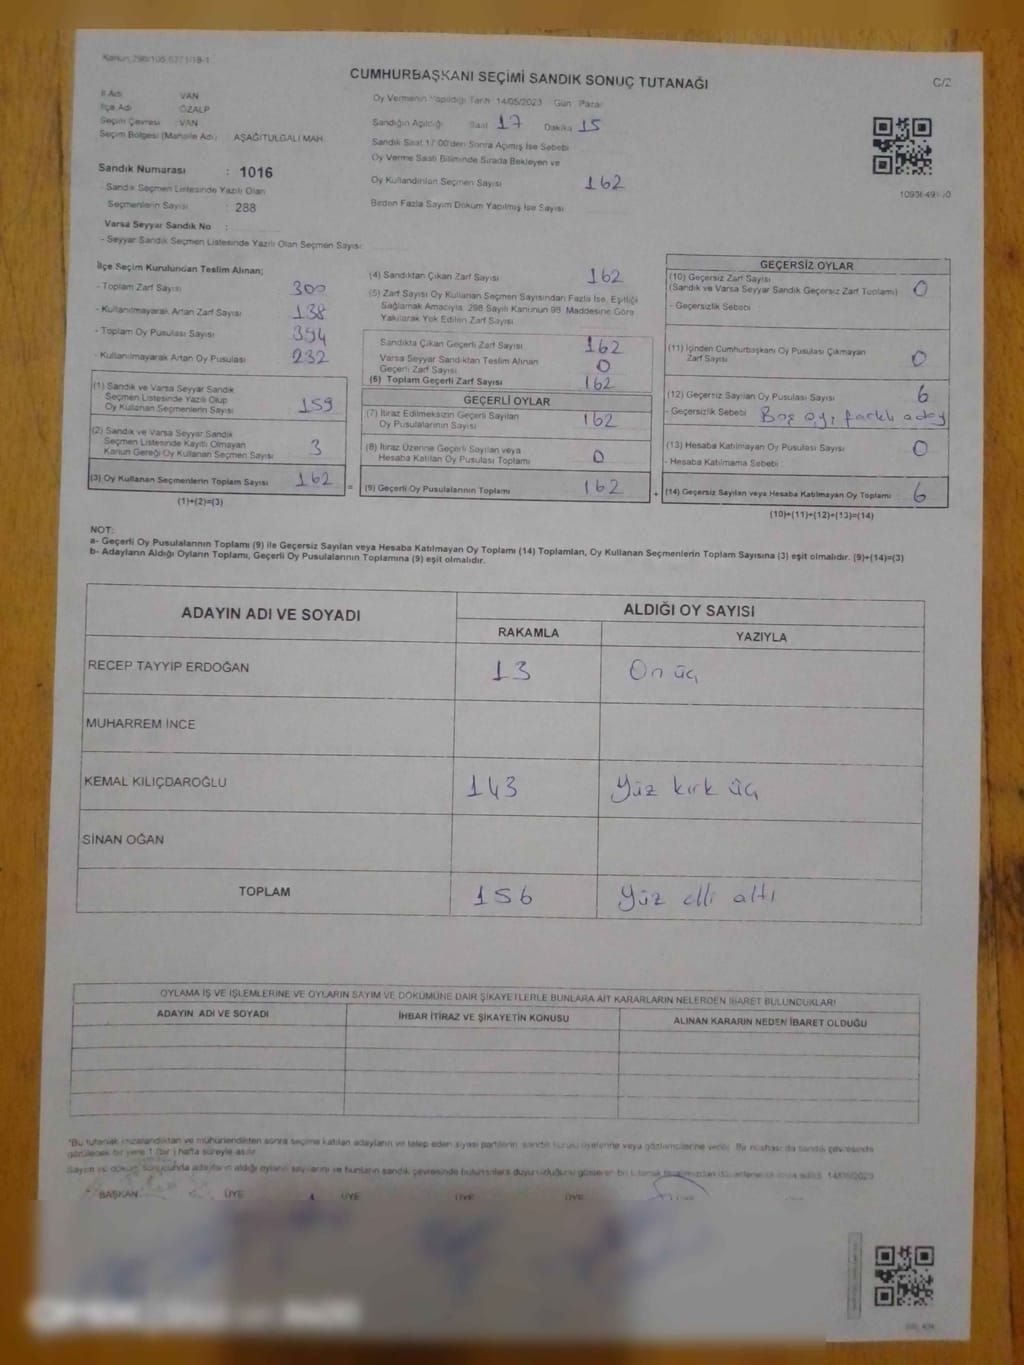 Kanun:298/105,6271/18-1
CUMHURBAŞKANI SEÇİMİ SANDIK SONUÇ TUTANAĞI
C/2
İl Adı VAN
İlçe Adı ÖZALP
Seçim Çevresi : VAN
Seçim Bölgesi (Mahalle Adı) : AŞAĞITULGALI MAH.
Sandık Numarası : 1016
- Sandık Seçmen Listesinde Yazılı Olan
Seçmenlerin Sayısı : 288
Varsa Seyyar Sandık No :
- Seyyar Sandık Seçmen Listesinde Yazılı Olan Seçmen Sayısı:
Oy Vermenin Yapıldığı Tarih 14/05/2023 Gün : Pazar
Sandığın Açıldığı Saat 17 Dakika 15
Sandık Saat 17:00'den Sonra Açılmış İse Sebebi
Oy Verme Saati Bitiminde Sırada Bekleyen ve
Oy Kullandırılan Seçmen Sayısı 162
Birden Fazla Sayım Döküm Yapılmış İse Sayısı
İlçe Seçim Kurulundan Teslim Alınan;
- Toplam Zarf Sayısı 300
- Kullanılmayarak Artan Zarf Sayısı 138
- Toplam Oy Pusulası Sayısı 394
- Kullanılmayarak Artan Oy Pusulası 232
(1) Sandık ve Varsa Seyyar Sandık
Seçmen Listesinde Yazılı Olup
Oy Kullanan Seçmenlerin Sayısı 159
(2) Sandık ve Varsa Seyyar Sandık
Seçmen Listesinde Kayıtlı Olmayan
Kanun Gereği Oy Kullanan Seçmen Sayısı 3
(3) Oy Kullanan Seçmenlerin Toplam Sayısı 162
(1)+(2)=(3)
(4) Sandıktan Çıkan Zarf Sayısı 162
(5) Zarf Sayısı Oy Kullanan Seçmen Sayısından Fazla İse, Eşitliği
Sağlamak Amacıyla, 298 Sayılı Kanunun 98. Maddesine Göre
Yakılarak Yok Edilen Zarf Sayısı
Sandıkta Çıkan Geçerli Zarf Sayısı 162
Varsa Seyyar Sandıktan Teslim Alınan
Geçerli Zarf Sayısı 0
(6) Toplam Geçerli Zarf Sayısı 162
GEÇERLİ OYLAR
(7) İtiraz Edilmeksizin Geçerli Sayılan
Oy Pusulalarının Sayısı 162
(8) İtiraz Üzerine Geçerli Sayılan veya
Hesaba Katılan Oy Pusulası Toplamı 0
= (9) Geçerli Oy Pusulalarının Toplamı 162 +
GEÇERSİZ OYLAR
(10) Geçersiz Zarf Sayısı
(Sandık ve Varsa Seyyar Sandık Geçersiz Zarf Toplamı) 0
- Geçersizlik Sebebi
(11) İçinden Cumhurbaşkanı Oy Pusulası Çıkmayan
Zarf Sayısı 0
(12) Geçersiz Sayılan Oy Pusulası Sayısı 6
- Geçersizlik Sebebi Boş oy, farklı aday
(13) Hesaba Katılmayan Oy Pusulası Sayısı 0
- Hesaba Katılmama Sebebi :
(14) Geçersiz Sayılan veya Hesaba Katılmayan Oy Toplamı 6
(10)+(11)+(12)+(13)=(14)
NOT:
a- Geçerli Oy Pusulalarının Toplamı (9) ile Geçersiz Sayılan veya Hesaba Katılmayan Oy Toplamı (14) Toplamları, Oy Kullanan Seçmenlerin Toplam Sayısına (3) eşit olmalıdır. (9)+(14)=(3)
b- Adayların Aldığı Oyların Toplamı, Geçerli Oy Pusulalarının Toplamına (9) eşit olmalıdır.
ADAYIN ADI VE SOYADI ALDIĞI OY SAYISI
RAKAMLA YAZIYLA
RECEP TAYYİP ERDOĞAN 13 On üç
MUHARREM İNCE
KEMAL KILIÇDAROĞLU 143 Yüz kırk üç
SİNAN OĞAN
TOPLAM 156 Yüz elli altı
OYLAMA İŞ VE İŞLEMLERİNE VE OYLARIN SAYIM VE DÖKÜMÜNE DAİR ŞİKAYETLERLE BUNLARA AİT KARARLARIN NELERDEN İBARET BULUNDUKLARI
ADAYIN ADI VE SOYADI İHBAR İTİRAZ VE ŞİKAYETİN KONUSU ALINAN KARARIN NEDEN İBARET OLDUĞU
*Bu tutanak imzalandıktan ve mühürlendikten sonra seçime katılan adayların ve talep eden siyasi partilerin sandık kurulu üyelerine veya gözlemcilerine verilir. Bir nüshası da sandık çevresinde
görülecek bir yere 1 (bir) hafta süreyle asılır.
Sayım ve döküm sonucunda adayların aldığı oyların sayılarını ve bunların sandık çevresinde bulunanlara duyurulduğunu gösteren bu 14/05/2023
BAŞKAN ÜYE ÜYE ÜYE ÜYE